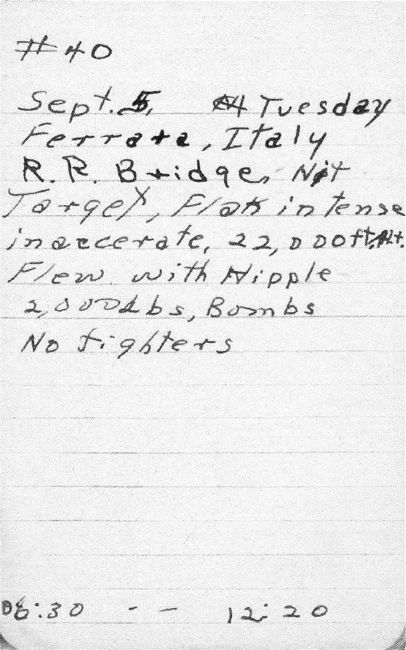 #40
Sept. 5, 44 Tuesday
Ferrara, Italy
R.R. Bridge, Hit
Target, Flak intense
inaccerate, 22,000ft, Alt.
Flew with Hipple
2,000Lbs, Bombs
No fighters
06:30 - - 12:20